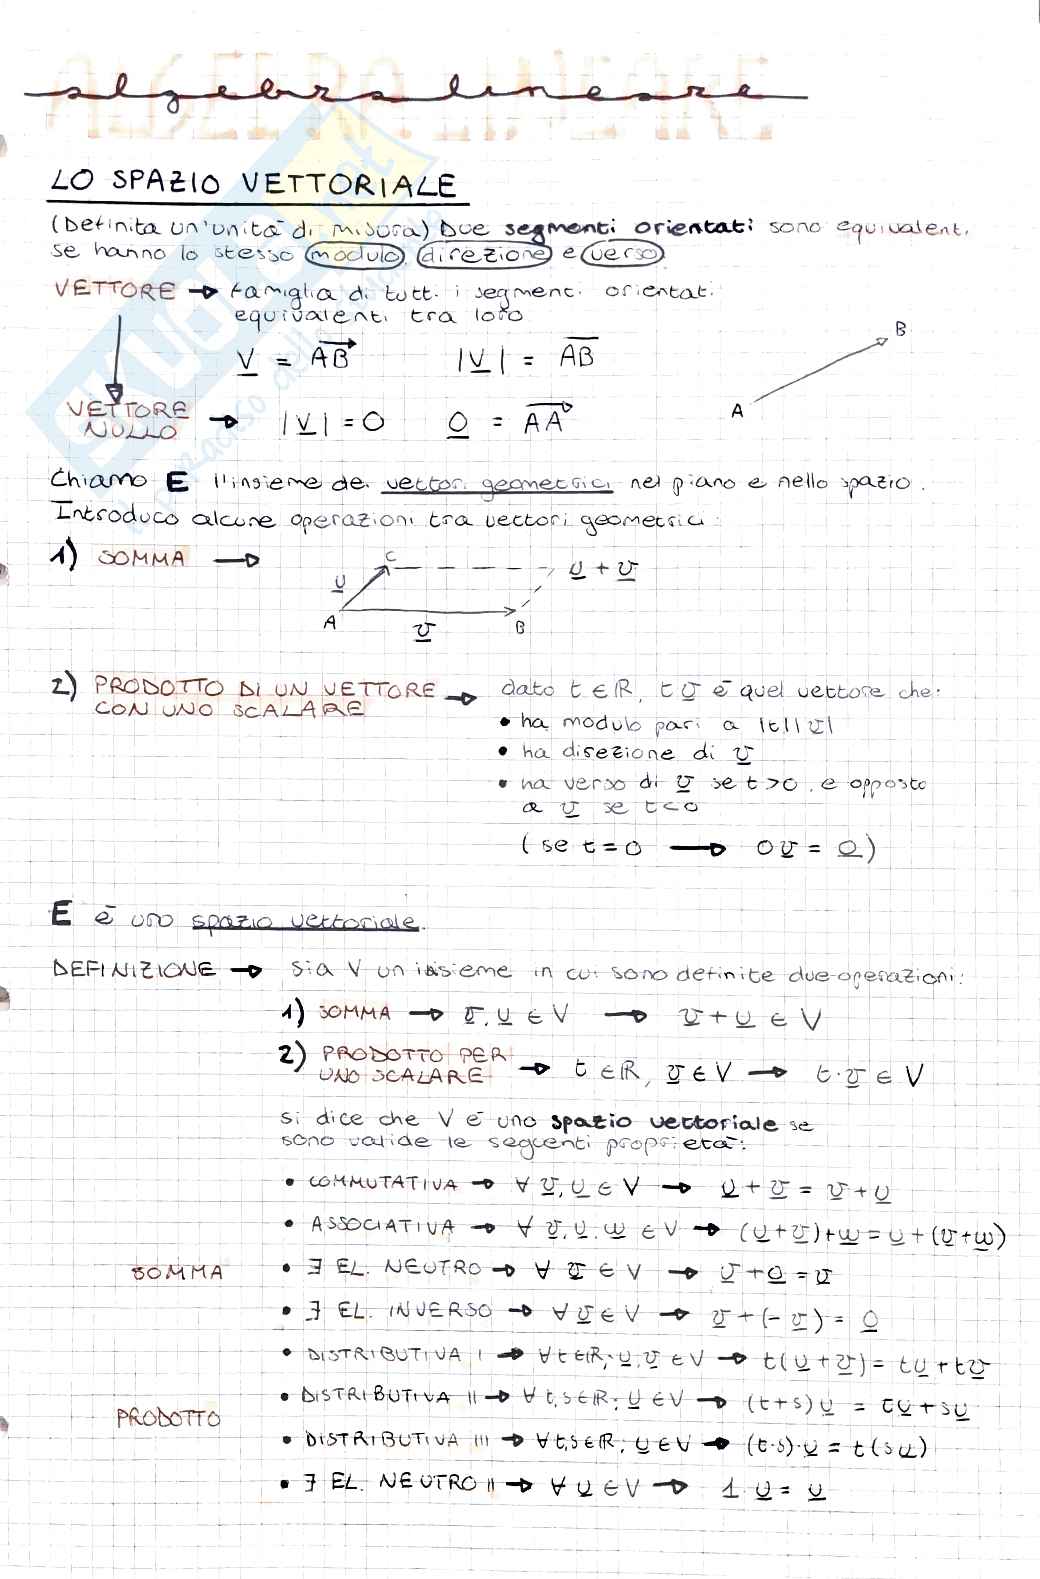 algebra lineare
LO SPAZIO VETTORIALE
(Definita un'unità di misura) Due segmenti orientati sono equivalenti
se hanno lo stesso modulo, direzione e verso
VETTORE → famiglia di tutti i segmenti orientati
equivalenti tra loro
V = AB |V| = AB
A B
VETTORE
NULLO → |V| = 0 0 = AA
Chiamo E l'insieme dei vettori geometrici nel piano e nello spazio.
Introduco alcune operazioni tra vettori geometrici:
1) SOMMA →
C
u u + v
A v B
2) PRODOTTO DI UN VETTORE
CON UNO SCALARE → dato t ∈ ℝ, t v è quel vettore che:
• ha modulo pari a |t| |v|
• ha direzione di v
• ha verso di v se t > 0, e opposto
a v se t < 0
(se t = 0 → 0v = 0)
E è uno spazio vettoriale.
DEFINIZIONE → sia V un insieme in cui sono definite due operazioni:
1) SOMMA → v, u ∈ V → v + u ∈ V
2) PRODOTTO PER
UNO SCALARE → t ∈ ℝ, v ∈ V → t · v ∈ V
si dice che V è uno spazio vettoriale se
sono valide le seguenti proprietà:
SOMMA
• COMMUTATIVA → ∀ v, u ∈ V → u + v = v + u
• ASSOCIATIVA → ∀ v, u, w ∈ V → (u + v) + w = u + (v + w)
• ∃ EL. NEUTRO → ∀ v ∈ V → v + 0 = v
• ∃ EL. INVERSO → ∀ v ∈ V → v + (- v) = 0
PRODOTTO
• DISTRIBUTIVA I → ∀ t ∈ ℝ; u, v ∈ V → t(u + v) = tu + tv
• DISTRIBUTIVA II → ∀ t, s ∈ ℝ; u ∈ V → (t + s) u = tu + su
• DISTRIBUTIVA III → ∀ t, s ∈ ℝ; u ∈ V → (t · s) · u = t (s u)
• ∃ EL. NEUTRO II → ∀ u ∈ V → 1 u = u